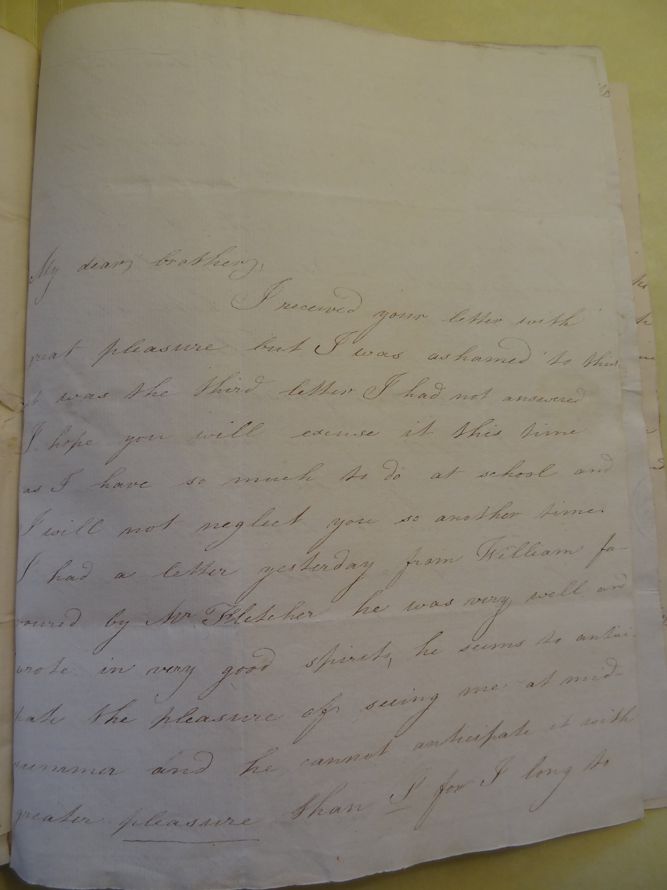 My dear brother,
I received your letter with
great pleasure but I was ashamed to this
it was the third letter I had not answered
I hope you will excuse it this time
as I have so much to do at school and
I will not neglect you so another time.
I had a letter yesterday from William fa-
voured by Mr Fletcher he was very well and
wrote in very good spirits, he seems to antici-
pate the pleasure of seeing me at mid-
summer and he cannot anticipate it with
greater pleasure than I for I long to